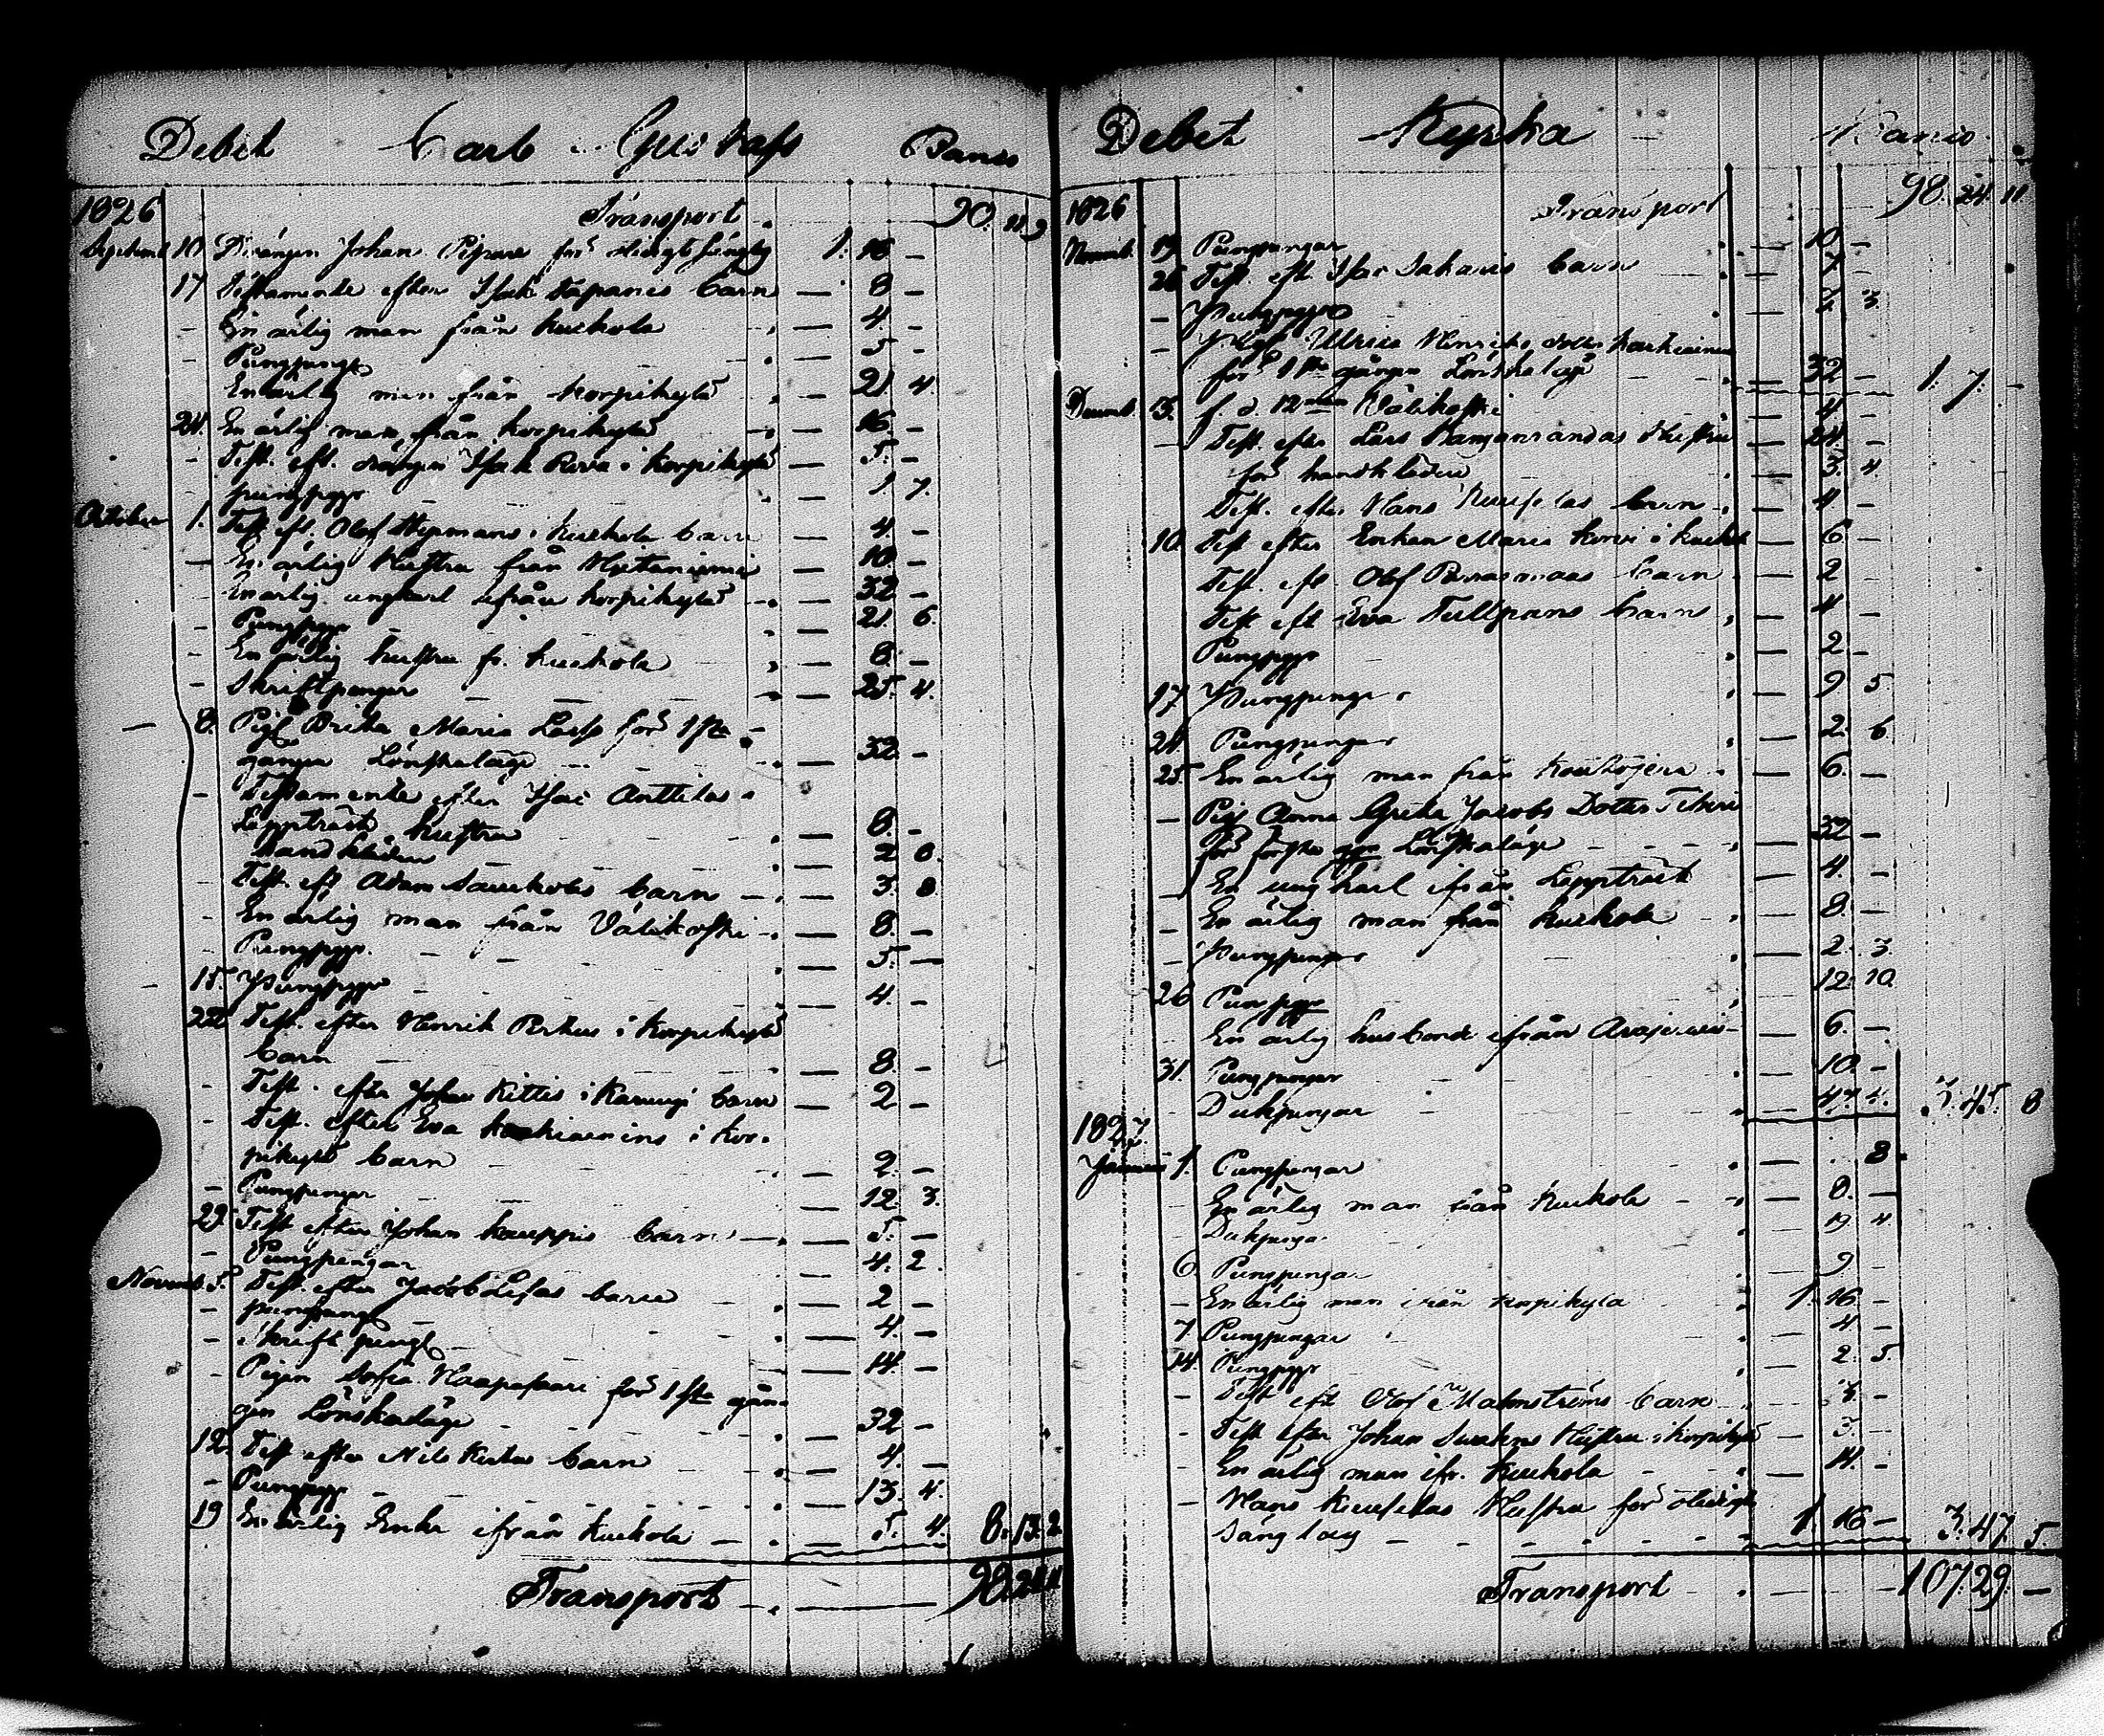 Debet Carl Gustafs Banco
1826 Transport 90. 11. 9
Septemb 10 Drängen Johan Pipare för olidigt sängläg 1. 16 —
17 Testamente efter Isak Tapanis barn — 8 —
— En ärlig man från Kuckola — 4. —
— Pungpengr — 5 —
En ärlig man från Korpikylä — 21 4.
24 En ärlig man från Korpikylä — 16 —
— Test. eft. drängen Isak Rova i Korpikylä — 5. —
— pungpgr — 1 7.
October 1. Test eft. Olof Heponians i Kuckola barn — 4. —
— En ärlig Hustru från Hietaniemi — 10 —
En ärlig ungkarl ifrån Korpikylä — 32 —
— Pungpgr — 21. 6.
— En ärlig hustru fr. Kuckola — 8. —
— Skriftpengar — 25. 4.
— 8. Pig. Brita Maria Lass för 1sta
gången Lönskaläge — 32. —
— Testamente efter Isac Anttilas
Leppträsk hustru — 8. —
handkläden — 2 8.
Test. eft Adam Sauckolas barn — 3. 8.
— En ärlig man från Välikoski — 8. —
— Pungpgr. — 5. —
— 15. Pungpgr — 4. —
22 Test. efter Henrik Perkus i Korpikylä
barn — 8. —
— Test. efter Johan Kittis i Karungi barn — 2 —
— Test. efter Eva Karkiainens i Kor-
pikylä barn — 2. —
— Pungpengar — 12. 3.
29. Test efter Johan Kauppis barn — 5. —
— Pungpengar — 4. 2.
Novemb. 5. Test. efter Jacob Lifas barn — 2 —
— pungpengr — 4. —
— Skrift pengr — 14. —
— Pigan Sofia Haapasaari för 1sta gån-
gen Lönskaläge — 32 —
12. Test efter Nils Kertus barn — 4. —
— Pungpgr — 13. 4.
19 En ärlig Enka ifrån Kuckola — 5. 4. 8. 13. 2
Transport — 98. 24. 11
Debet Kyrka Banco
1826 Transport 98. 24. 11
Novemb. 19 Pungpengar — 10. —
26 Test. eft Isac Sakaris barn — 7. —
— Pungpgr — 7. 3.
— Pig. Ulrica Henriks dotter Karkiainen
för 1sta gången Lönskaläge — 32 — 1. 7. —
Decemb. 3. f. d. 12 man Välikoski — 4 —
— Test. efter Lars Kangonrandas Hustru — 24. —
för handkläden — 3. 4.
Test. efter Hans Kuuselas barn — 4 —
10 Test efter Enkan Maria Korvi i Kuckola — 6 —
Test. eft Olof Parrasmaas barn — 2 —
Test eft Eva Tullpans barn — 4 —
Pungpgr — 2 —
17 Pungpengr — 9 5.
24. Pungpengar — 2. 6
25. En ärlig man från Koivojerv — 6. —
— Pig. Anna Greta Jacobs Dotter
för första ggn Lönskaläge — 32 —
— En ungkarl ifrån Leppträsk — 4. —
— En ärlig man från Kuckola — 8. —
— Pungpengar — 2. 3.
26 Pungpgr 12. 10
En ärlig husbonde ifrån Arajervi — 6. —
31. Pungpengar — 10. —
— Dukpengar — 47. 4. 3. 45. 8
1827.
Januari 1. Pungpengar — 8.
— En ärlig man från Kuckola — 8. —
— Dukpengar 19 4
6 Pungpengar — 9 —
— En ärlig man ifrån Korpikylä 1. 16 —
7 Pungpengar — 4 —
14. Pungpgr — 2. 5.
— Test eft Olof Malmströms barn — 3 —
— Test efter Johan Swahns Hustru i Korpikylä — 3. —
— En ärlig man ifr. Kuckola — 4. —
— Hans Kuuselas Hustru för olidigt
sänglag 1. 16 — 3. 47. 5.
Transport — 107. 29. —